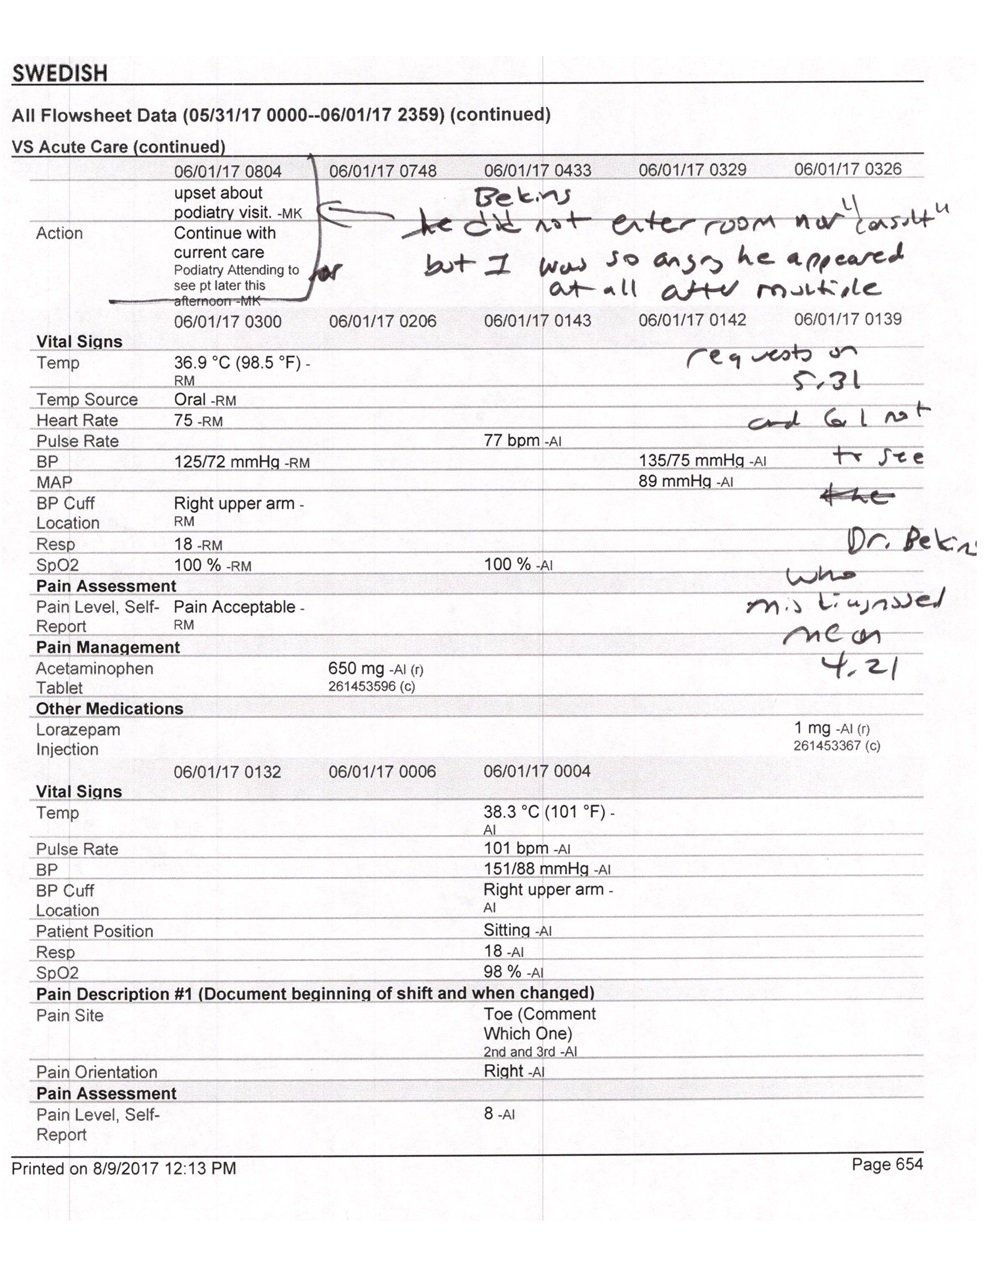 SWEDISH
All Flowsheet Data (05/31/17 0000--06/01/17 2359) (continued)
VS Acute Care (continued)
06/01/17 0804 06/01/17 0748 06/01/17 0433 06/01/17 0329 06/01/17 0326
upset about
podiatry visit. -MK
Action Continue with
current care
Podiatry Attending to
see pt later this
afternoon -MK
Bekins
he did not enter room nor "consult"
but I was so angry he appeared
at all after multiple
requests on
5.31
and 6.1 not
to see
the
Dr. Bekins
who
misdiagnosed
me on
4.21
06/01/17 0300 06/01/17 0206 06/01/17 0143 06/01/17 0142 06/01/17 0139
Vital Signs
Temp 36.9 °C (98.5 °F) -
RM
Temp Source Oral -RM
Heart Rate 75 -RM
Pulse Rate 77 bpm -AI
BP 125/72 mmHg -RM 135/75 mmHg -AI
MAP 89 mmHg -AI
BP Cuff Right upper arm -
Location RM
Resp 18 -RM
SpO2 100 % -RM 100 % -AI
Pain Assessment
Pain Level, Self- Pain Acceptable -
Report RM
Pain Management
Acetaminophen 650 mg -AI (r)
Tablet 261453596 (c)
Other Medications
Lorazepam 1 mg -AI (r)
Injection 261453367 (c)
06/01/17 0132 06/01/17 0006 06/01/17 0004
Vital Signs
Temp 38.3 °C (101 °F) -
AI
Pulse Rate 101 bpm -AI
BP 151/88 mmHg -AI
BP Cuff Right upper arm -
Location AI
Patient Position Sitting -AI
Resp 18 -AI
SpO2 98 % -AI
Pain Description #1 (Document beginning of shift and when changed)
Pain Site Toe (Comment
Which One)
2nd and 3rd -AI
Pain Orientation Right -AI
Pain Assessment
Pain Level, Self- 8 -AI
Report
Printed on 8/9/2017 12:13 PM Page 654